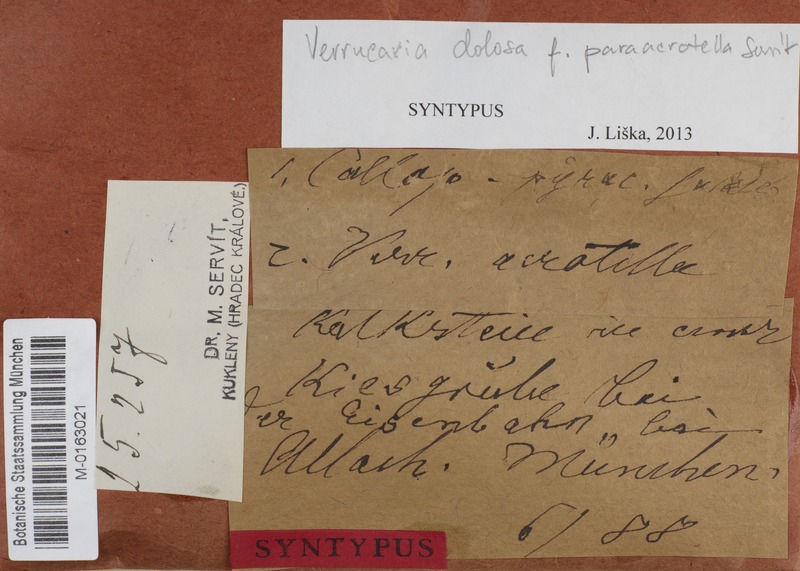 Verrucaria dolosa f. paraacrotella Servít
SYNTYPUS
J. Liška, 2013
1. Callop. pyrac.
2. Verr. acrotella
Kalksteine in einer
Kiesgrube bei
der Eisenbahn bei
Allach. München.
6/88
SYNTYPUS
DR. M. SERVÍT,
KUKLENY (HRADEC KRÁLOVÉ.)
15.257
Botanische Staatssammlung München
M-0163021